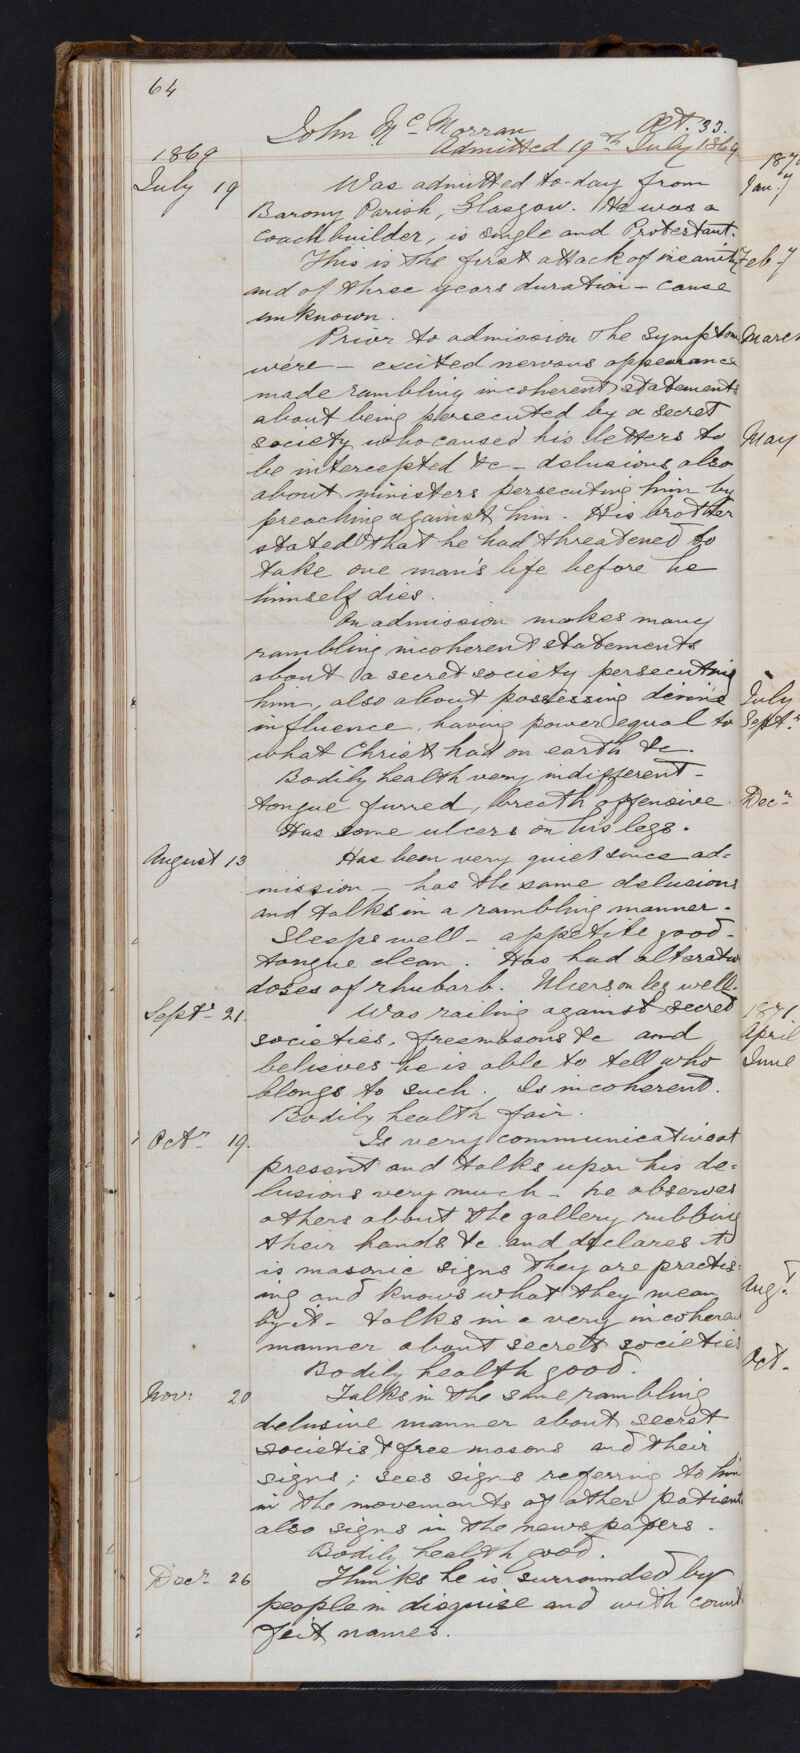 64
John Mc Morran Aet. 33.
1869 Admitted 19th July 1869.
July 19 Was admitted to-day from
Barony Parish, Glasgow. He was a
Coachbuilder, is single and Protestant.
This is the first attack of insanity
and of three years duration - cause
unknown.
Prior to admission the symptom
were - excited nervous appearance
made rambling incoherent statements
about being persecuted by a secret
society who caused his letters to
be intercepted &c - delusions also
about ministers persecuting him by
preaching against him. His brother
stated that he had threatened to
take one man's life before he
himself dies.
On admission makes many
rambling incoherent statements
about a secret society persecuting
him, also about possessing divine
influence, having power equal to
what Christ had on earth &c.
Bodily health very indifferent -
tongue furred, breath offensive.
Has some ulcers on his legs.
August 13 Has been very quiet since ad=
mission - has the same delusions
and talks in a rambling manner.
Sleeps well - appetite good -
tongue clean. Has had alterative
doses of rhubarb. Ulcers on leg well.
Septr. 21. Was railing against secret
societies, freemasons &c and
believes he is able to tell who
blongs to such. Is incoherent.
Bodily health fair.
Octr. 19. Is very communicative at
present and talks upon his de=
lusions very much - he observes
others about the gallery rubbing
their hands &c and declares it
is masonic signs they are practis=
ing and knows what they mean
by it - talks in a very incoherent
manner about secret societies
Bodily health good.
Novr. 20 Talks in the same rambling
delusive manner about secret
societis & free masons and their
signs; sees signs referring to him
in the movements of other patients
also signs in the newspapers.
Bodily health good.
Decr. 26 Thinks he is surrounded by
people in disguise and with count
feit names.
187
Jan. 7
Feb. 7
March
May
July
Septr.
Decr.
1871.
April
June
Augt.
Oct.